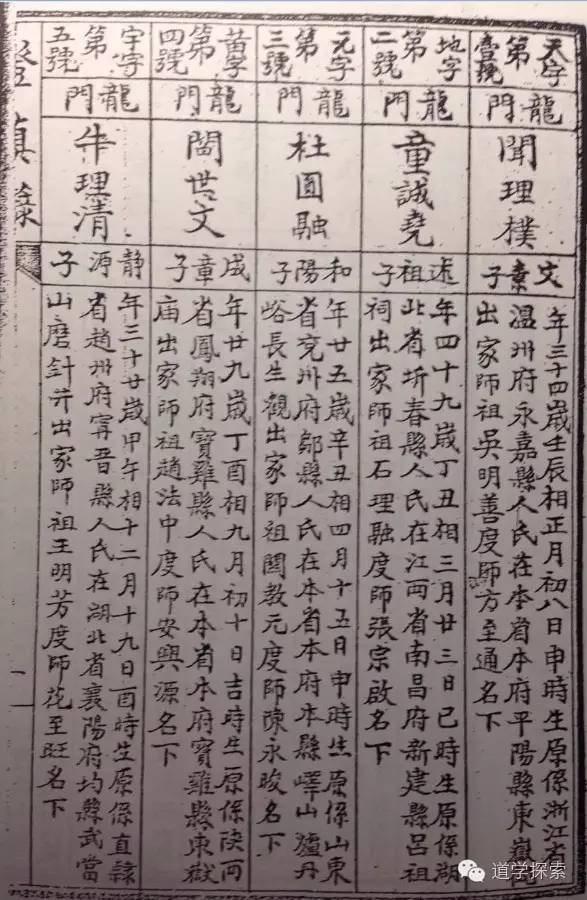 天字
第
壹號
龍門
聞理樸
文素子
年三十四歲壬辰相正月初八日申時生原係浙江省
温州府永嘉縣人氏在本省本府平陽縣東嶽
出家師祖吳明善度師方至通名下
地字
第
二號
龍門
童誠堯
述祖子
年四十九歲丁丑相三月廿三日已時生原係湖
北省圻春縣人氏在江西省南昌府新建縣呂祖
祠出家師祖石理融度師張宗啟名下
元字
第
三號
龍門
杜圓融
和陽子
年廿五歲辛丑相四月十五日申時生原係山東
省兗州府鄒縣人氏在本省本府本縣嶧山爐丹
峪長生觀出家師祖閻教元度師陳永暶名下
苗字
第
四號
龍門
閻世文
成章子
年廿九歲丁酉相九月初十日吉時生原係陝西
省鳳翔府寶雞縣人氏在本省本府寶雞縣東嶽
庙出家師祖趙法中度師安興源名下
宇字
第
五號
龍門
牛理清
静沔子
年三十廿歲甲午相十二月十九日酉時生原係直隸
省趙州府甯晋縣人氏在湖北省襄陽府均縣武當
山磨針井出家師祖王明芳度師花至旺名下
登真籙
道学探索